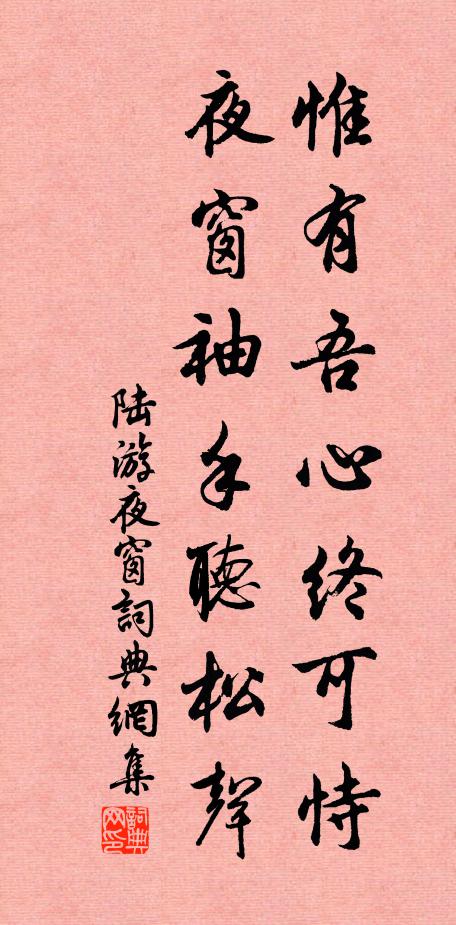 惟有吾心終可恃
夜窗袖手聽松聲
陆游夜窗詞典網集
詞典网印